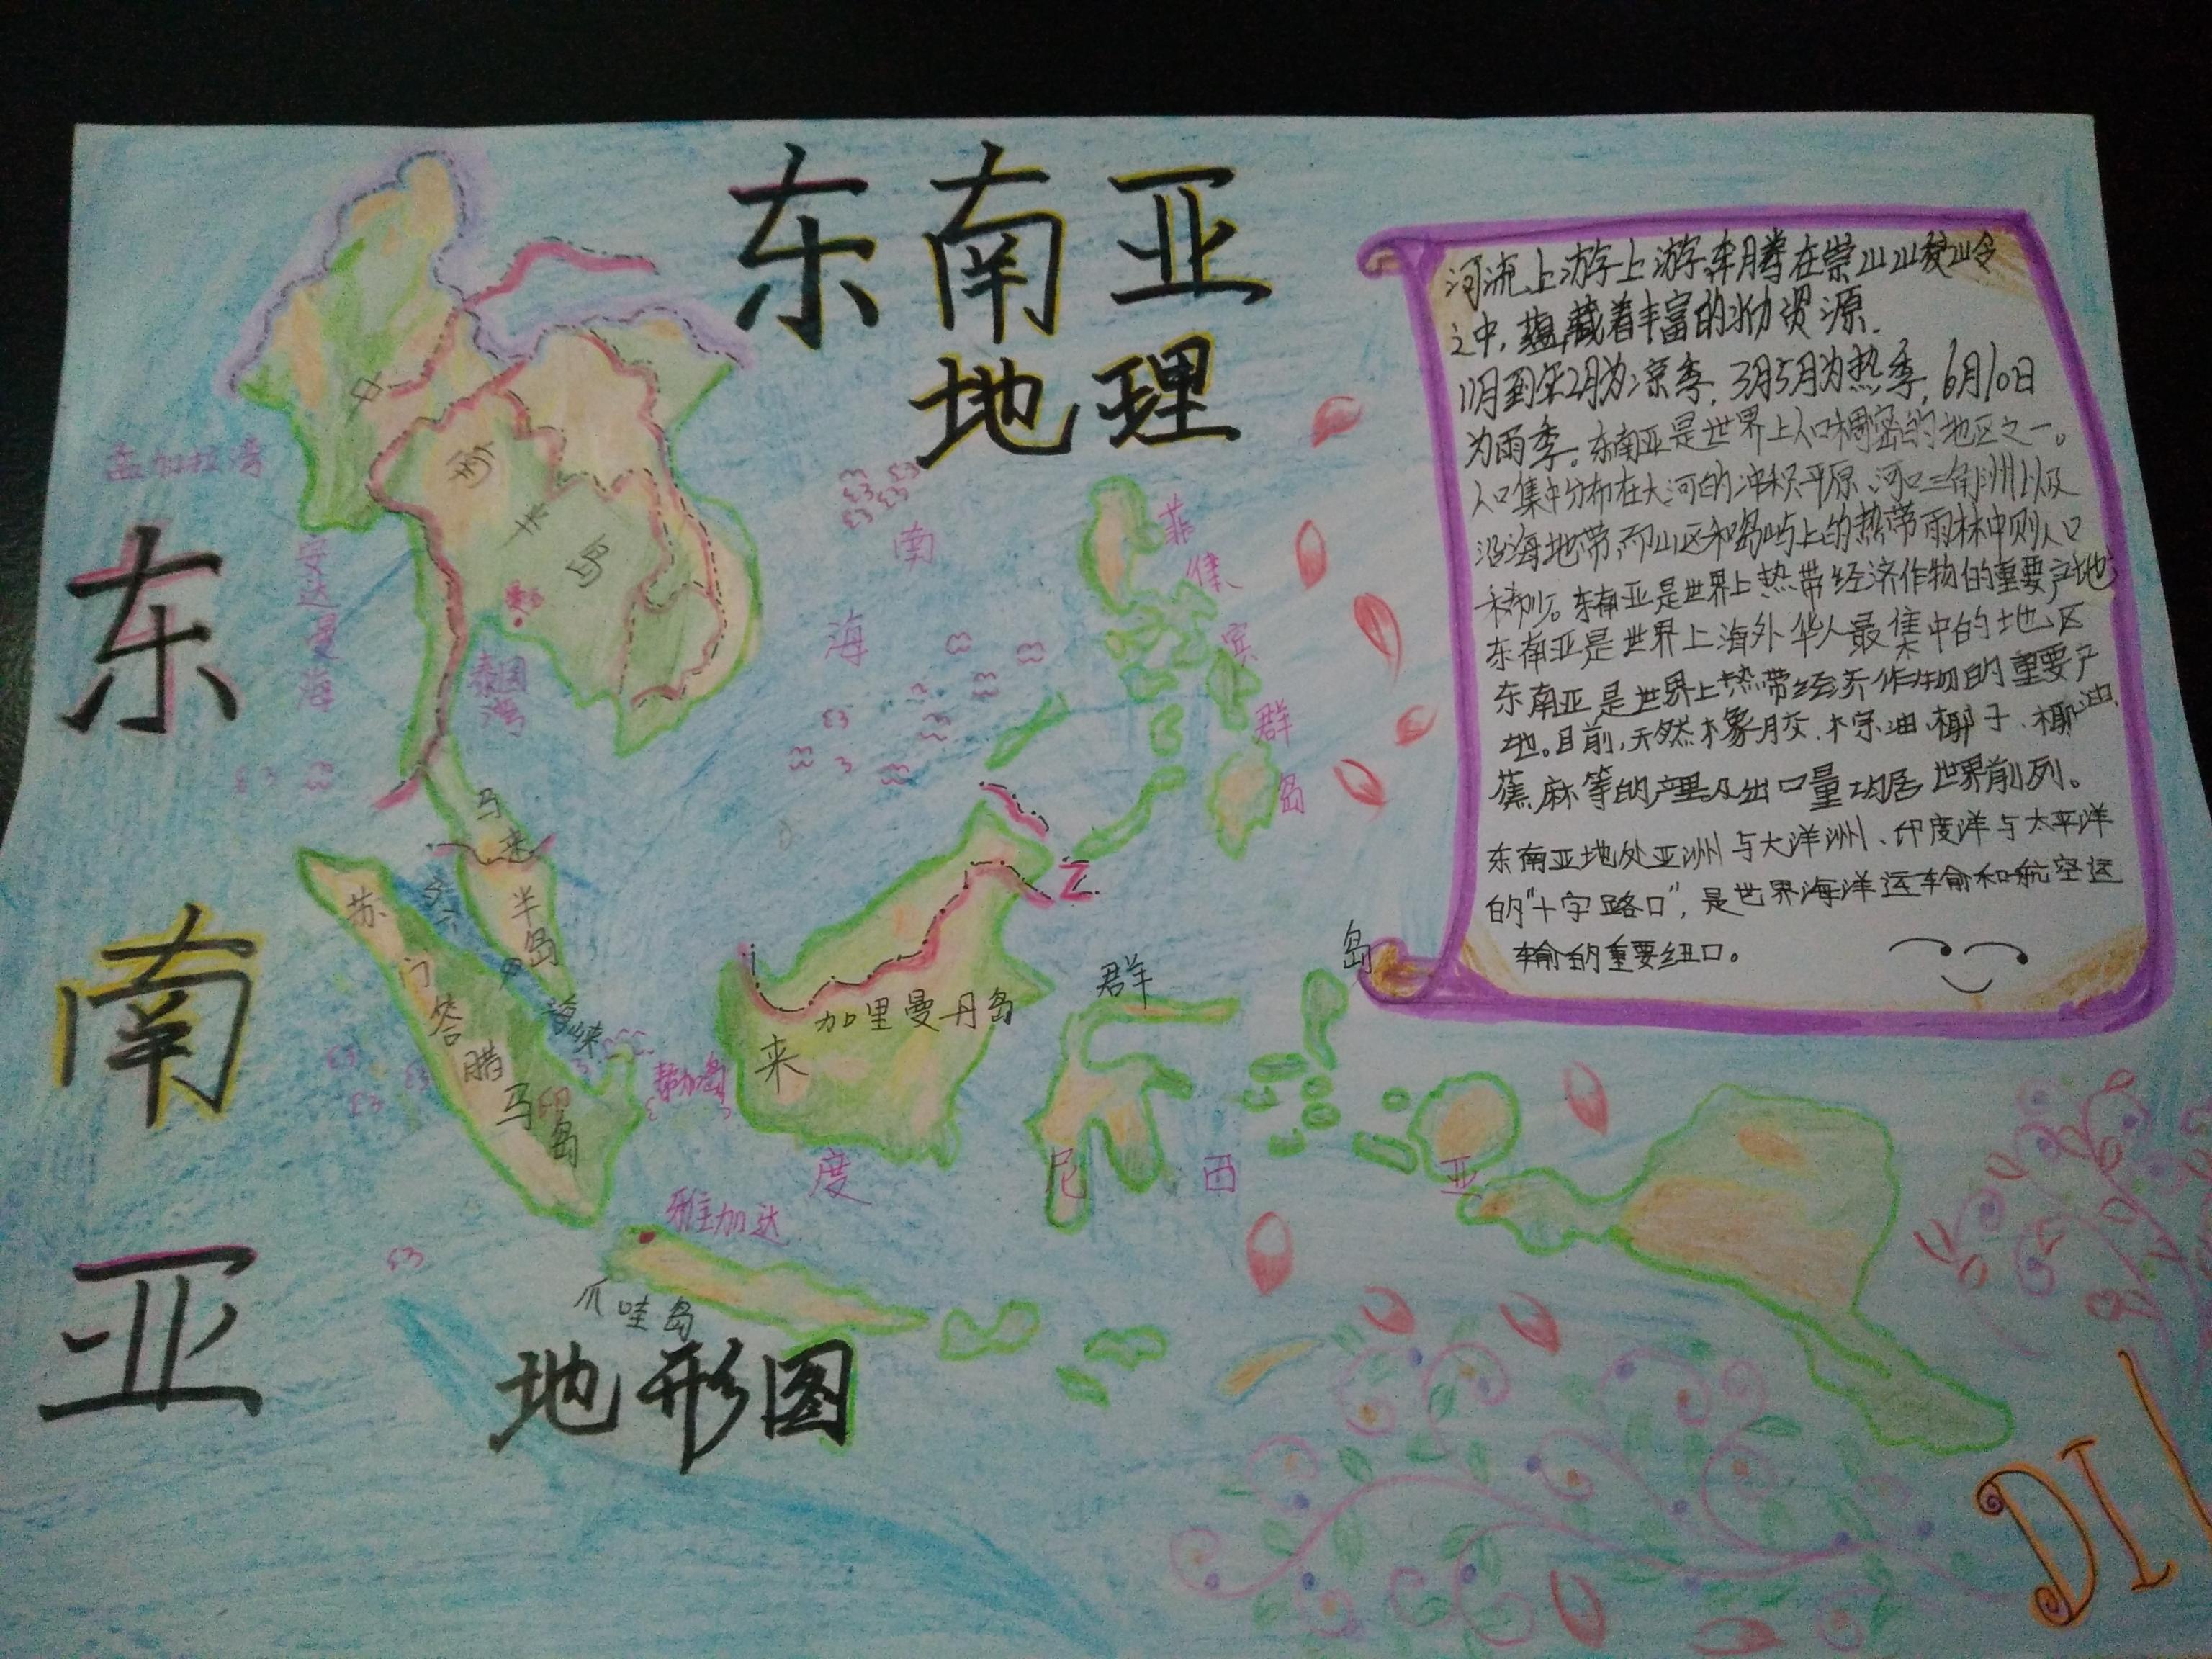 东南亚
地理
东
南
亚
地形图
孟加拉湾
安达曼海
中
南
半
岛
泰国湾
南
海
菲
律
宾
群
岛
马
来
半
岛
马六甲海峡
苏
门
答
腊
马
岛
印
加里曼丹岛
来
群
岛
度
尼
西
亚
雅加达
爪哇岛
河流上游字上游字奔腾在崇山峻岭
之中,蕴藏着丰富的水力资源.
11月到来2月为凉季,3月5月为热季,6月10日
为雨季。东南亚是世界上人口稠密的地区之一。
人口集中分布在大河的冲积平原、河口三角洲以及
沿海地带,而山区和岛屿上的热带雨林中则人口
稀少。东南亚是世界上热带经济作物的重要产地
东南亚是世界上海外华人最集中的地区
东南亚是世界上热带经济作物的重要产
地。目前,天然橡胶、棕油、椰子、椰油、
蕉麻等的产量及出口量均居世界前列。
东南亚地处亚洲与大洋洲、印度洋与太平洋
的"十字路口",是世界海洋运输和航空运
输的重要纽口。
DI